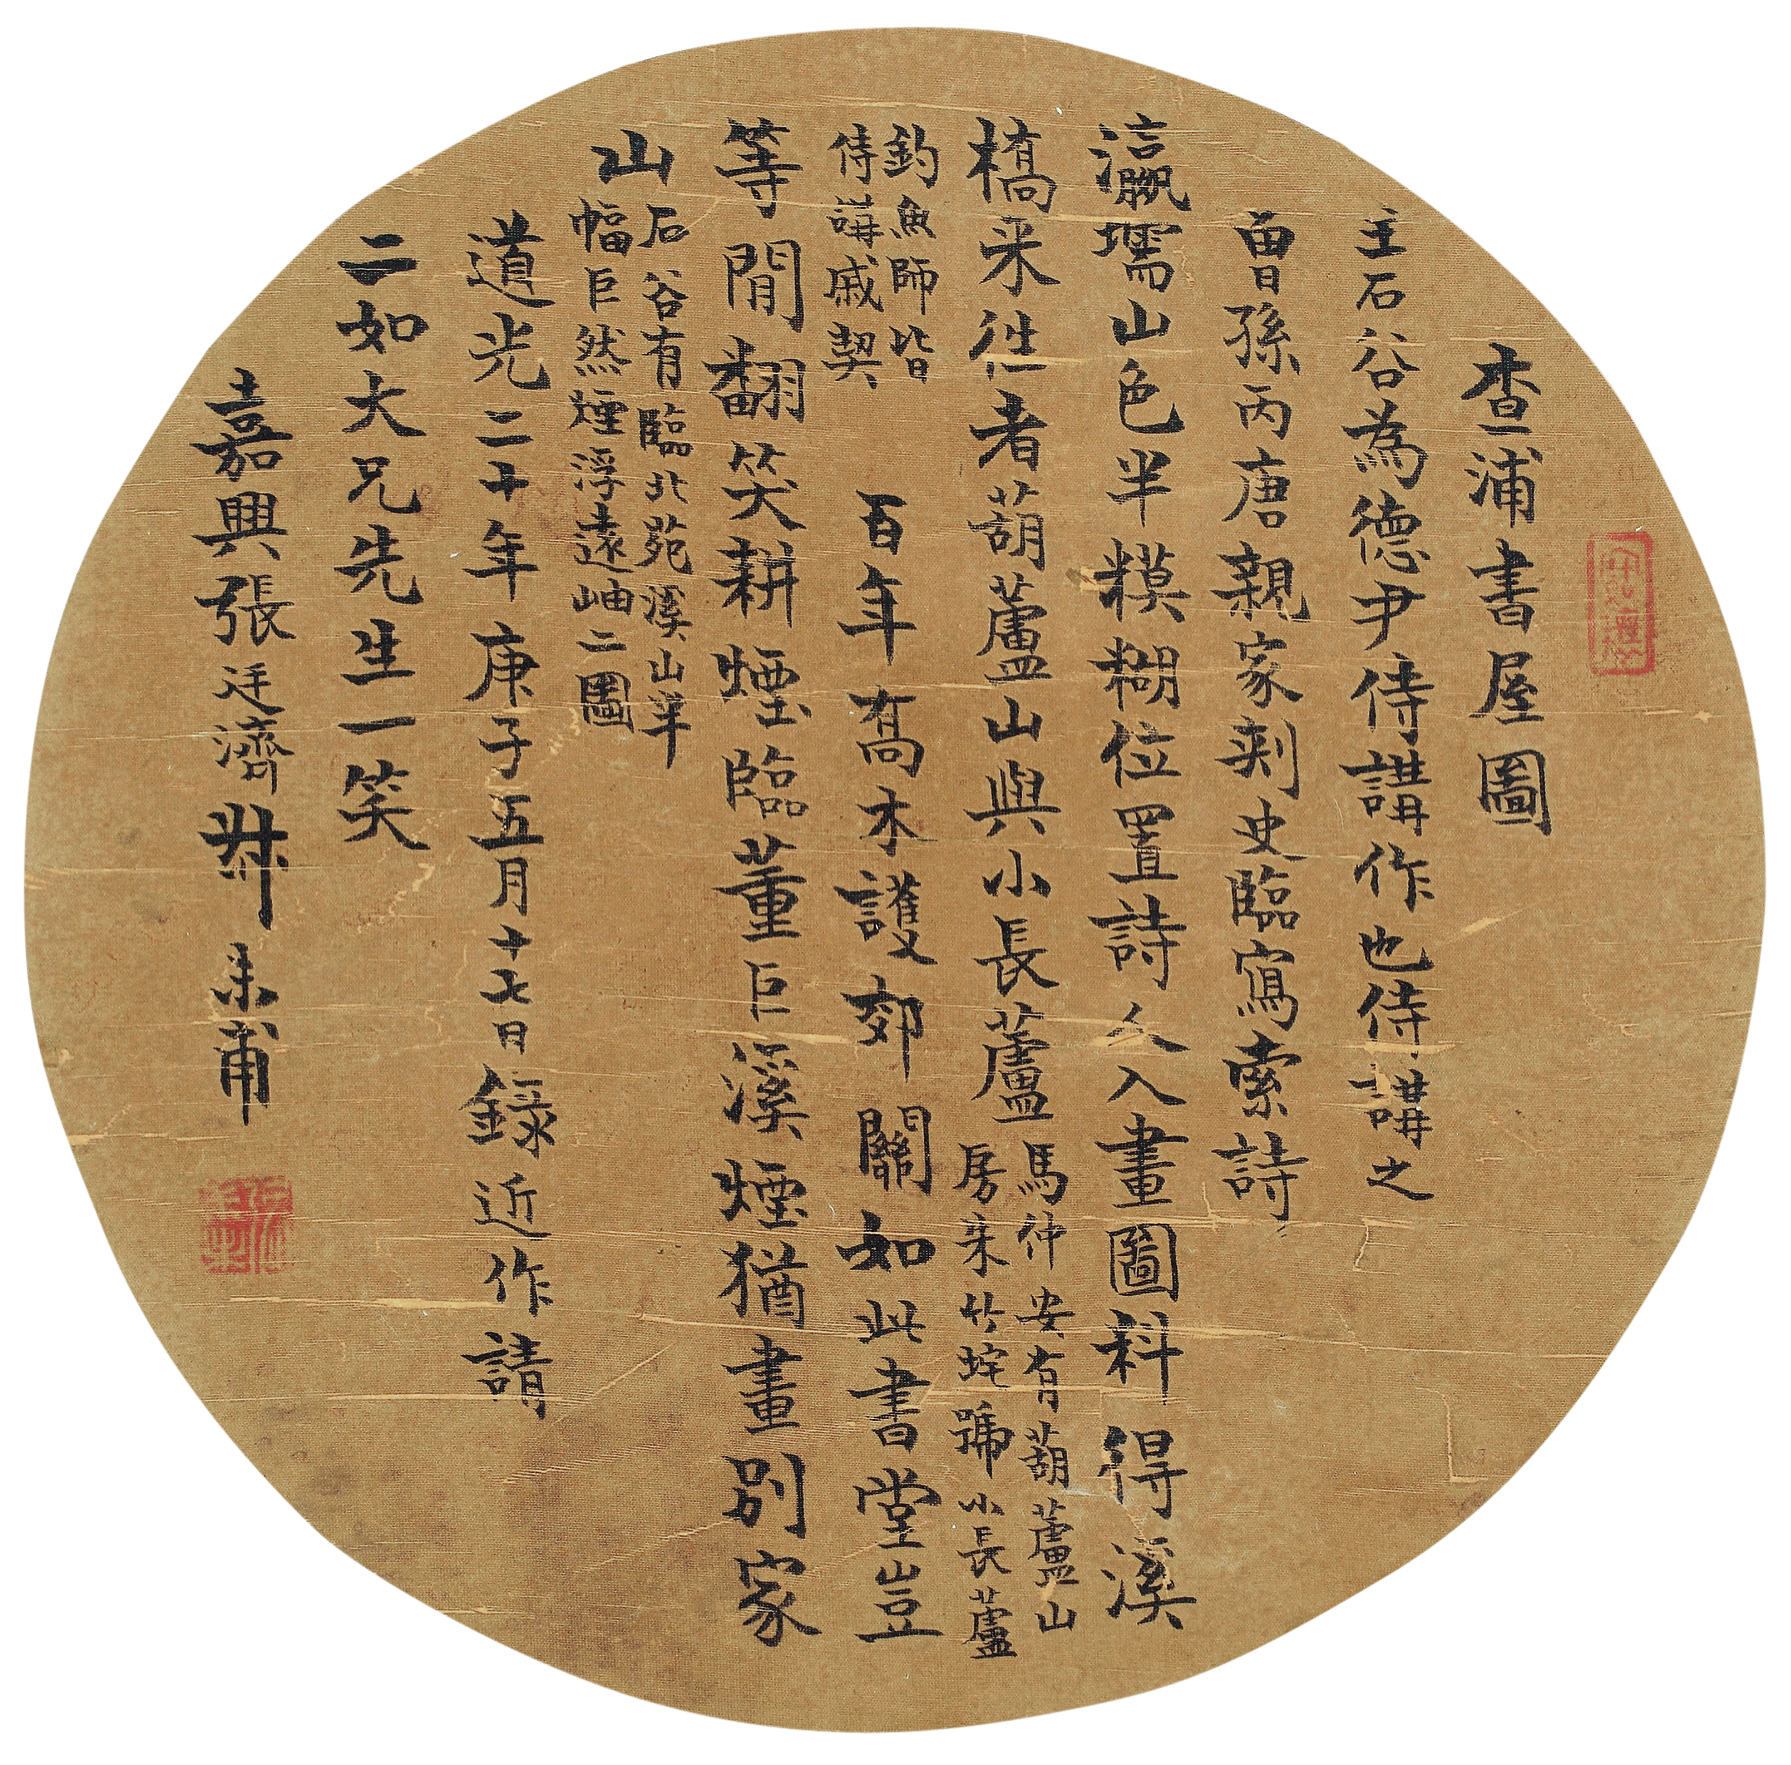 查浦書屋圖
王石谷為德尹侍講作也侍講之
曾孫丙唐親家刺史臨寫索詩
瀛壖山色半糢糊位置詩人入畫圖料得溪
橋來往者葫蘆山與小長蘆
馬仲安有葫蘆山
房朱竹垞號小長蘆
釣魚師皆
侍講戚契
百年喬木護郊關如此書堂豈
等閒翻笑耕煙臨董巨溪煙猶畫別家
山
石谷有臨北苑溪山半
幅巨然煙浮遠岫二圖
道光二十年庚子五月十七日錄近作請
二如大兄先生一笑
嘉興張廷濟叔未甫